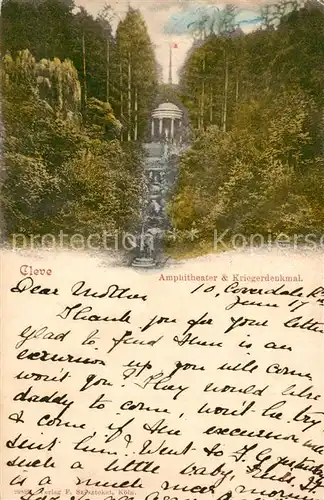 Cleve
Amphitheater & Kriegerdenkmal.
10, Coverdale Rd
Dear Mother June 7
Thank you for your letter
glad to find there is an
excursion up you will come
won't you? They would like
daddy to come, won't he try
& come if the excursion
sent him? Went to yesterday
such a little baby,
is a much nicer
Verlag F. Köln.